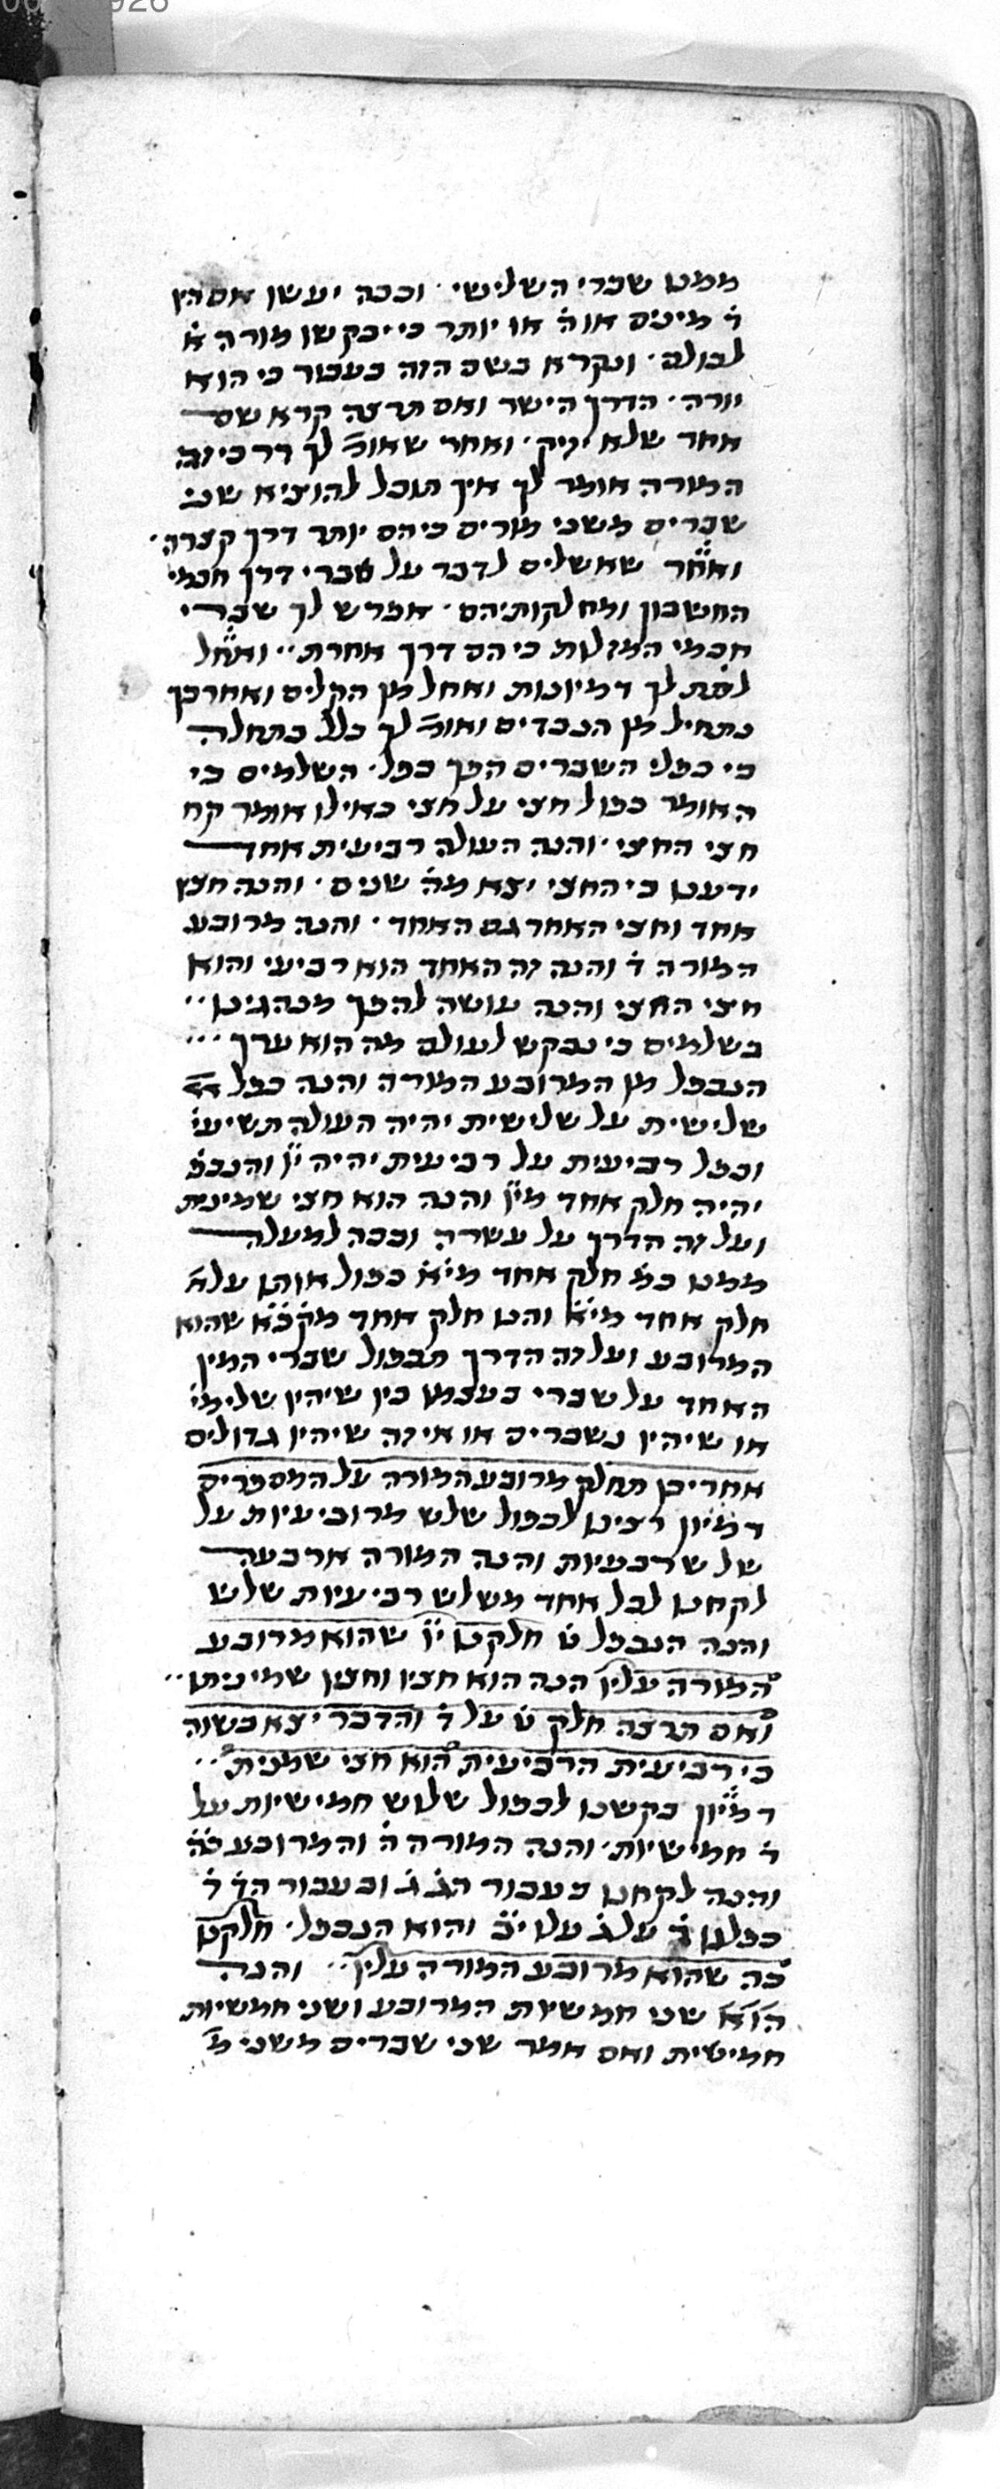 ממנו שברי השלישי · וככה יעשו אם היו
ד מינים או ה או יותר כי יבקשו מורה א
לכולם · ונקרא בשם הזה בעבור כי הוא
יורה · הדרך הישר ואם תרצה קרא שם
אחד שלא יזיק · ואחר שאומ' לך דרכי זה
המורה אומר לך איך תוכל להוציא שני
שברים משני מורים כי הם יותר דרך קצרה ·
ואחר שאשלים לדבר על שברי דרך חכמי
החשבון ומחלקותיהם · אפרש לך שברי
חכמי המזלות כי הם דרך אחרת ·· ואחל
לתת לך דמיונות ואחל מן הקלים ואחר כך
נתחיל מן הכבדים ואומ' לך כלל בתחלה
כי כפלי השברים הפך כפל · השלמים כי
האומר כפול חצי על חצי כאילו אומר קח
חצי החצי · והנה העולה רביעית אחד
ידענו כי החצי יצא מה שנים · והנה חציו
אחד וחצי האחר גם האחד · והנה מרובע
המורה ד והנה זה האחד הוא רביעי והוא
חצי החצי והנה עושה להפך מנהגינו ··
בשלמים כי נבקש לעולם מה הוא ערך ···
הנכפל מן המרובע המורה והנה כפל
שלישית על שלישית יהיה העולה תשיעי
וכפל רביעית על רביעית יהיה יו והנכפ'
יהיה חלק אחד מיו והנה הוא חצי שמינית
ועל זה הדרך על עשרה וככה למעלה
ממנו כמ' חלק אחד מיא כפול אותו על א
חלק אחד מיא והנו חלק אחד מקכא שהוא
המרובע ועל זה הדרך תכפול שברי המין
האחד על שברי בעצמו בין שיהיו שלימי'
או שיהיו נשברים או איזה שיהיו גדולים
אחרי כן תחלק מרובע המורה על המספרים
דמיון רצינו לכפול שלש מרובי עיות על
שלש רבעיות והנה המורה ארבעה
לקחנו לכל אחד משלש רביעיות שלש
והנה הנכפל ט חלקנו יו שהוא מרובע
המורה עליו הנה הוא חציו וחצי שמיניתו ··
ואם תרצה חלק ט על ד והדבר יצא בשוה
כי רביעית הרביעית הוא חצי שמנית ··
דמיון בקשנו לכפול שלוש חמישיות על
ד חמישיות · והנה המורה ה והמרובע כה
והנה לקחנו בעבור הג ג ובעבור הד ד
כפלנו ד על ג עלו יב והוא הנכפל · חלקנו
כה שהוא מרובע המורה עליו ·· והנה
הוא שני חמשיות המרובע ושני חמשיות
חמישית ואם אמר שני שברים משני מ'